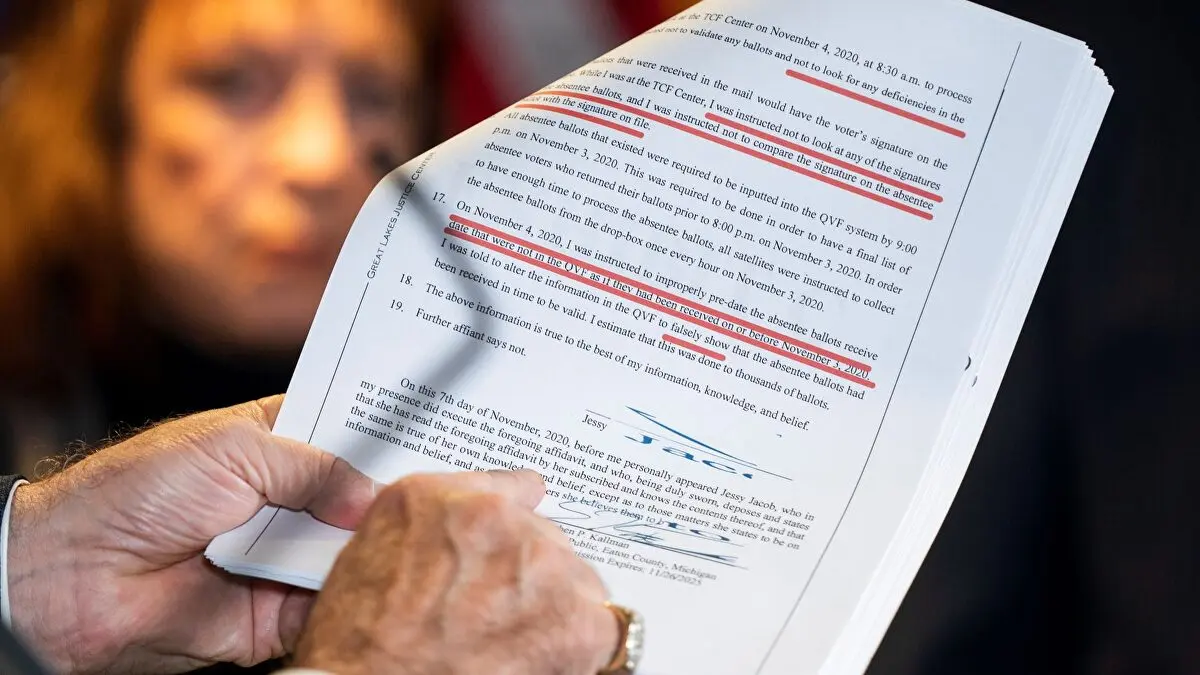 at the TCF Center on November 4, 2020, at 8:30 a.m. to process
not to validate any ballots and not to look for any deficiencies in the
that were received in the mail would have the voter's signature on the
While I was at the TCF Center, I was instructed not to look at any of the signatures
absentee ballots, and I was instructed not to compare the signature on the absentee
with the signature on file.
All absentee ballots that existed were required to be inputted into the QVF system by 9:00
p.m. on November 3, 2020. This was required to be done in order to have a final list of
absentee voters who returned their ballots prior to 8:00 p.m. on November 3, 2020. In order
to have enough time to process the absentee ballots, all satellites were instructed to collect
the absentee ballots from the drop-box once every hour on November 3, 2020.
17. On November 4, 2020, I was instructed to improperly pre-date the absentee ballots receive
date that were not in the QVF as if they had been received on or before November 3, 2020.
I was told to alter the information in the QVF to falsely show that the absentee ballots had
been received in time to be valid. I estimate that this was done to thousands of ballots.
18. The above information is true to the best of my information, knowledge, and belief.
19. Further affiant says not.
GREAT LAKES JUSTICE CENTER
Jessy Jacob
On this 7th day of November, 2020, before me personally appeared Jessy Jacob, who in
my presence did execute the foregoing affidavit, and who, being duly sworn, deposes and states
that she has read the foregoing affidavit by her subscribed and knows the contents thereof, and that
the same is true of her own knowledge and belief, except as to those matters she states to be on
information and belief, and as she believes them to b
hen P. Kallman
Public, Eaton County, Michigan
mission Expires: 11/26/2025